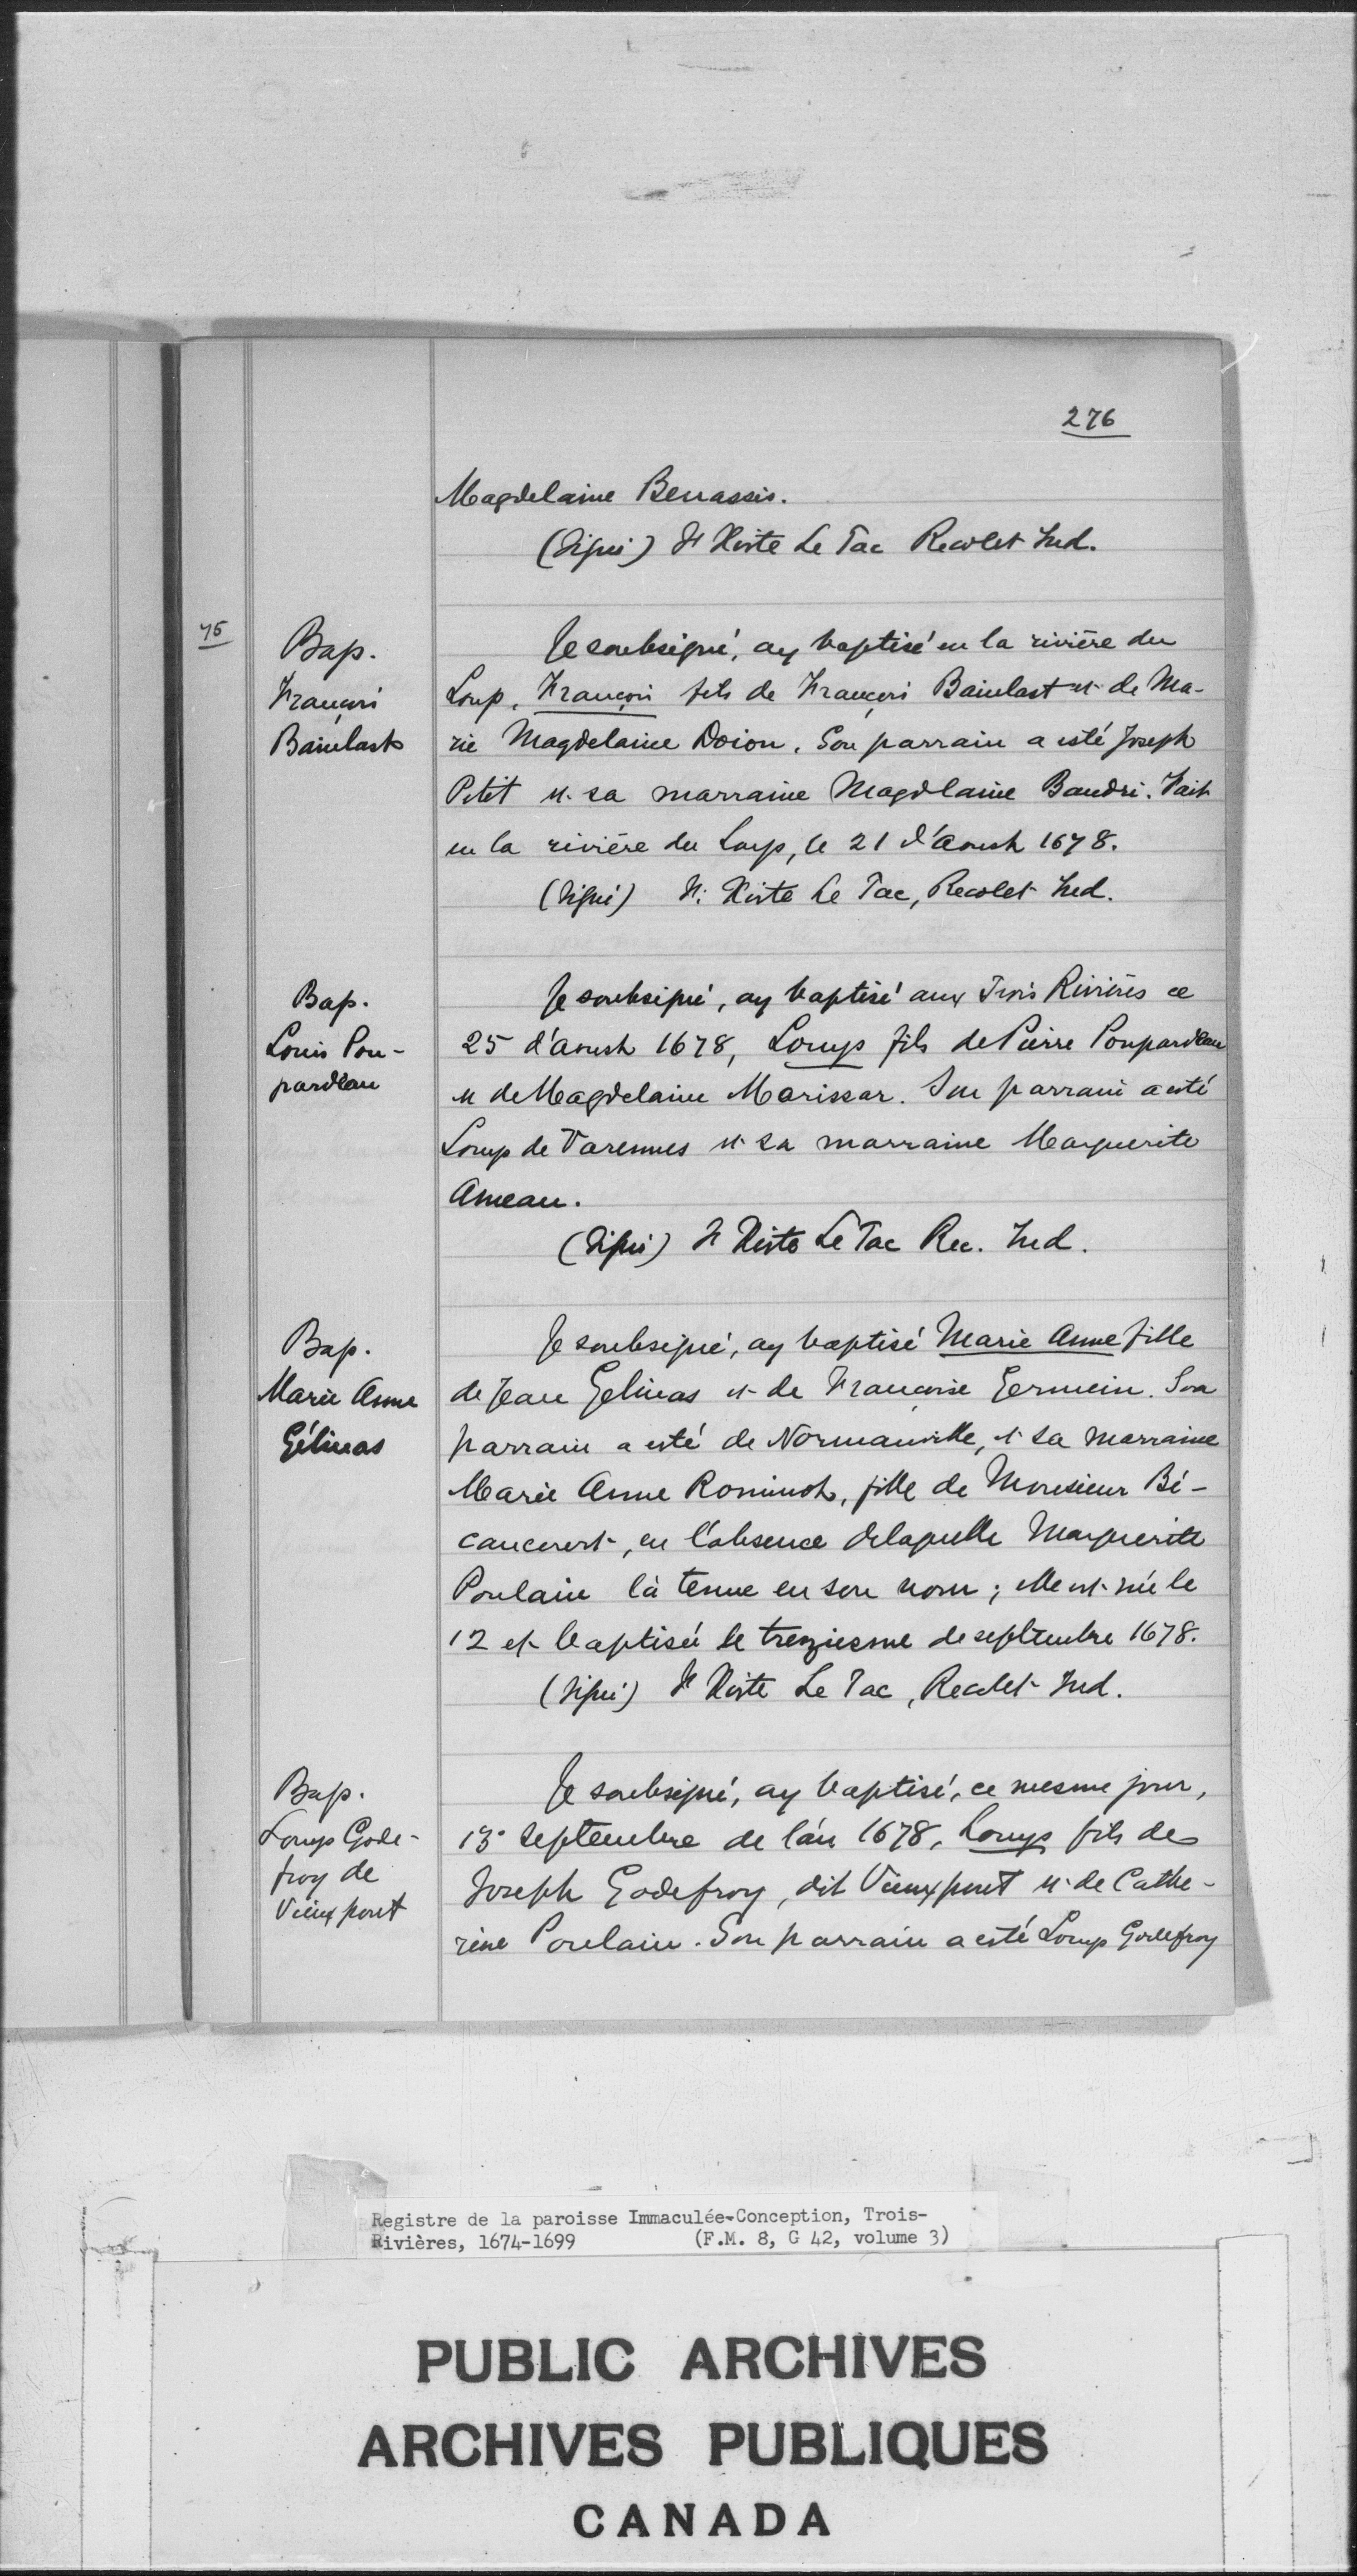 276
Magdelaine Benassis.
(Signé) F Xiste Le Tac Recolet Ind.
75
Bap.
François
Bainlast
Je soubsigné, ay baptisé en la rivière du
Loup, François fils de François Bainlast et de Ma-
rie Magdelaine Doion. Son parrain a esté Joseph
Petit et sa marraine Magdlaine Baudri. Fait
en la rivière du Loup, le 21 d'Aoust 1678.
(Signé) F. Xiste Le Tac, Recolet Ind.
Bap.
Louis Pou-
pardeau
Je soubsigné, ay baptisé aux Trois Rivières ce
25 d'aoust 1678, Louys fils de Pierre Poupardeau
et de Magdelaine Marissar. Son parrain a esté
Louys de Varennes et sa marraine Marguerite
Ameau.
(Signé) F Xiste Le Tac Rec. Ind.
Bap.
Marie Anne
Gélinas
Je soubsigné, ay baptisé Marie Anne fille
de Jean Gelinas et de Françoise Germein. Son
parrain a esté de Normanville, et sa marraine
Marie Anne Rominoh, fille de Monsieur Bé-
cancourt, en l'absence delaquelle Marguerite
Poulain là tenue en son nom; elle est née le
12 et baptisée le treziesme de septembre 1678.
(Signé) F Xiste Le Tac, Recolet Ind.
Bap.
Louys Gode-
froy de
Vieux pont
Je soubsigné, ay baptisé, ce mesme jour,
13e septembre de l'an 1678, Louys fils de
Joseph Godefroy, dit Vieuxpont et de Cathe-
rine Poulain. Son parrain a esté Louys Godefroy
Registre de la paroisse Immaculée-Conception, Trois-
Rivières, 1674-1699 (F.M. 8, G 42, volume 3)
PUBLIC ARCHIVES
ARCHIVES PUBLIQUES
CANADA